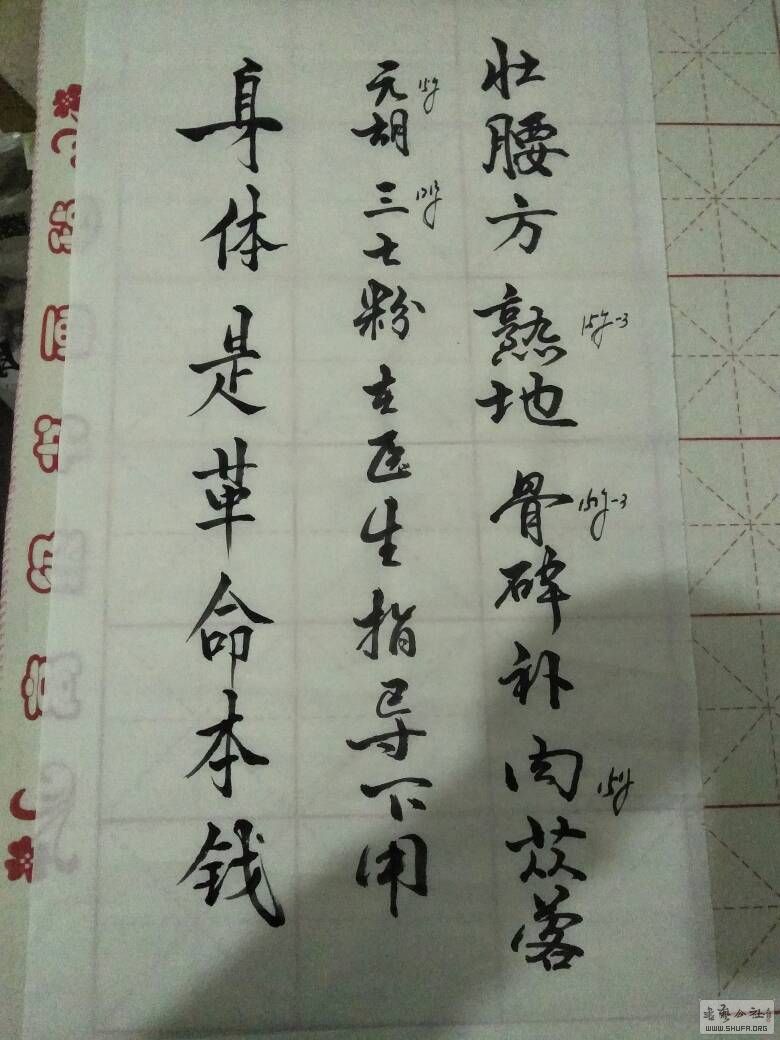 壮腰方 熟地 15g-3 骨碎补 15g-3 肉苁蓉 15g
元胡 15g 三七粉 在医生指导下用
身体是革命本钱
WWW.SHUFA.ORG